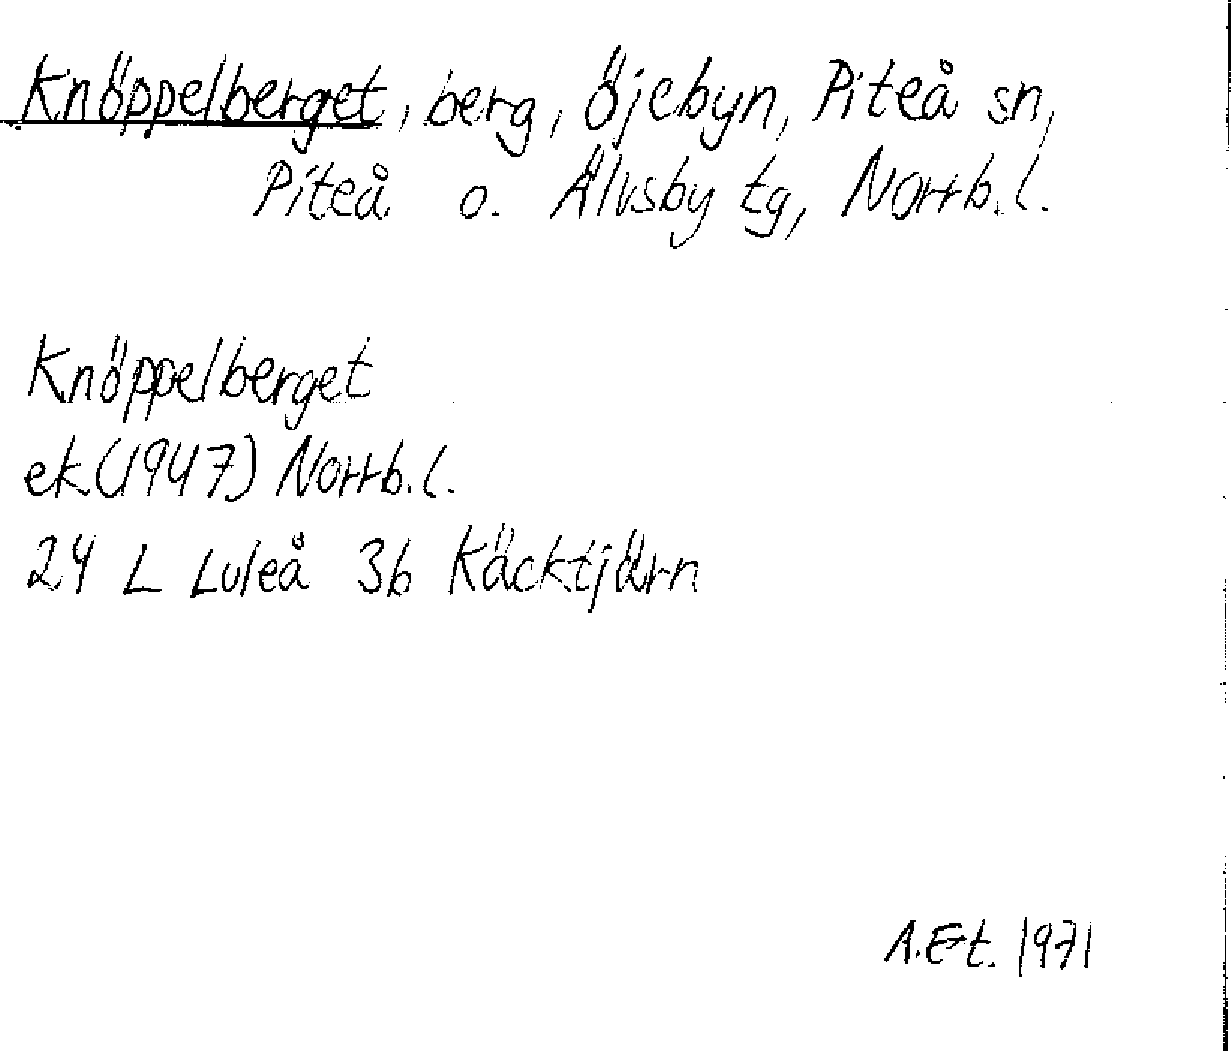 Knöppelberget, berg, Öjebyn, Piteå sn,
Piteå o. Älvsby tg, Norrb.l.
Knöppelberget
ek.(1947) Norrb.l.
24 L Luleå 3b Käcktjärn
1971